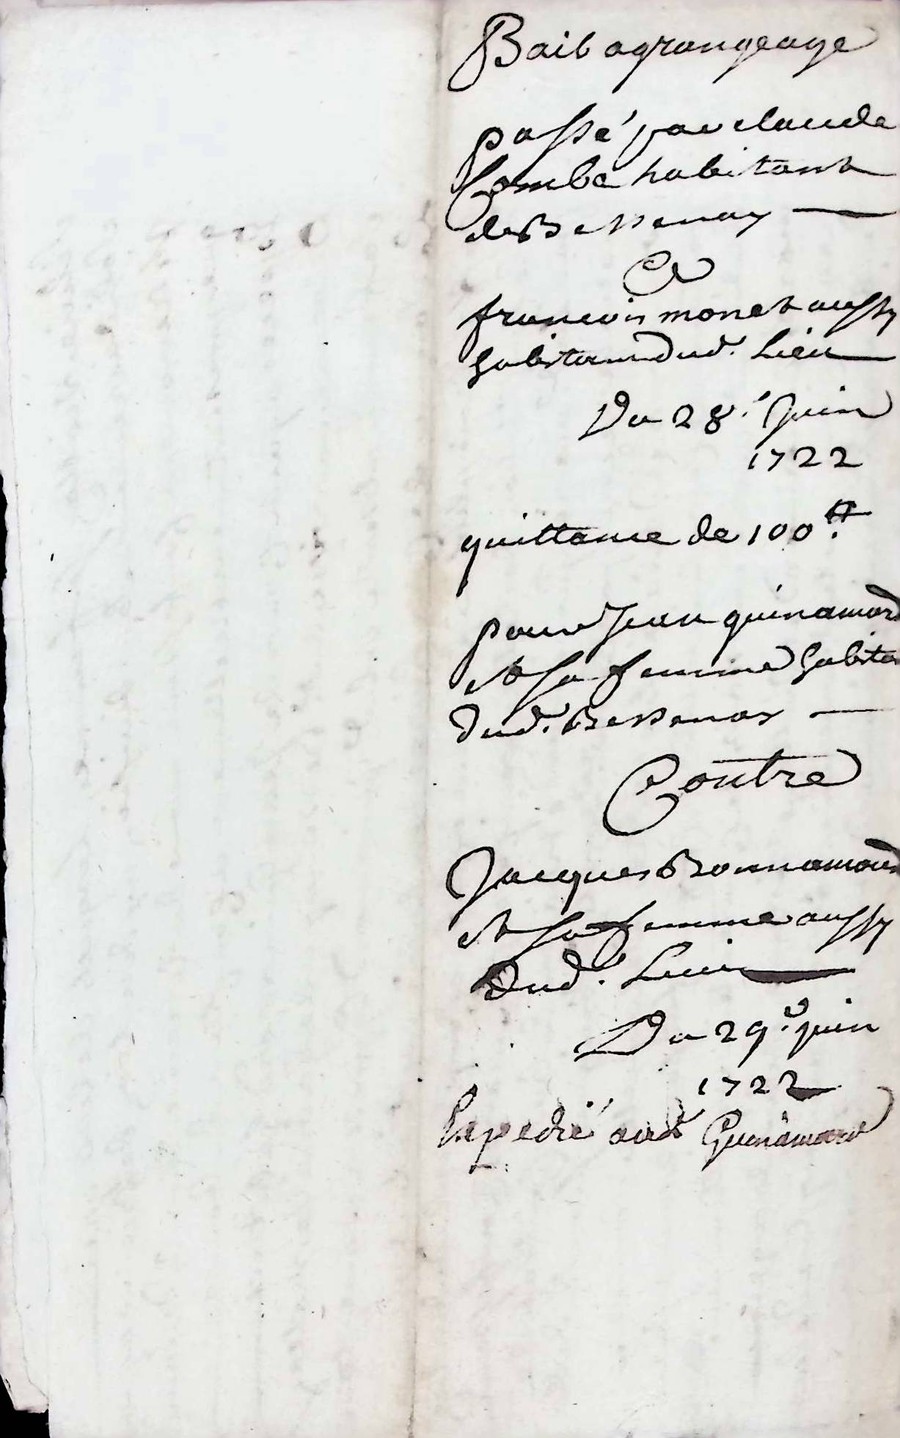 Bail a grangeage
passé par claude
Combe habitant
de Bessenay
A
francois monet aussy
habitant dud. Lieu
Du 28.e Juin
1722
quittance de 100 ₶.
pour Jean guinamard
et sa femme habitan
dud. Bessenay
Contre
Jacques Bonnamour
et sa femme aussy
dud. Lieu
Du 29.e juin
1722
Expedié aud Guinamard